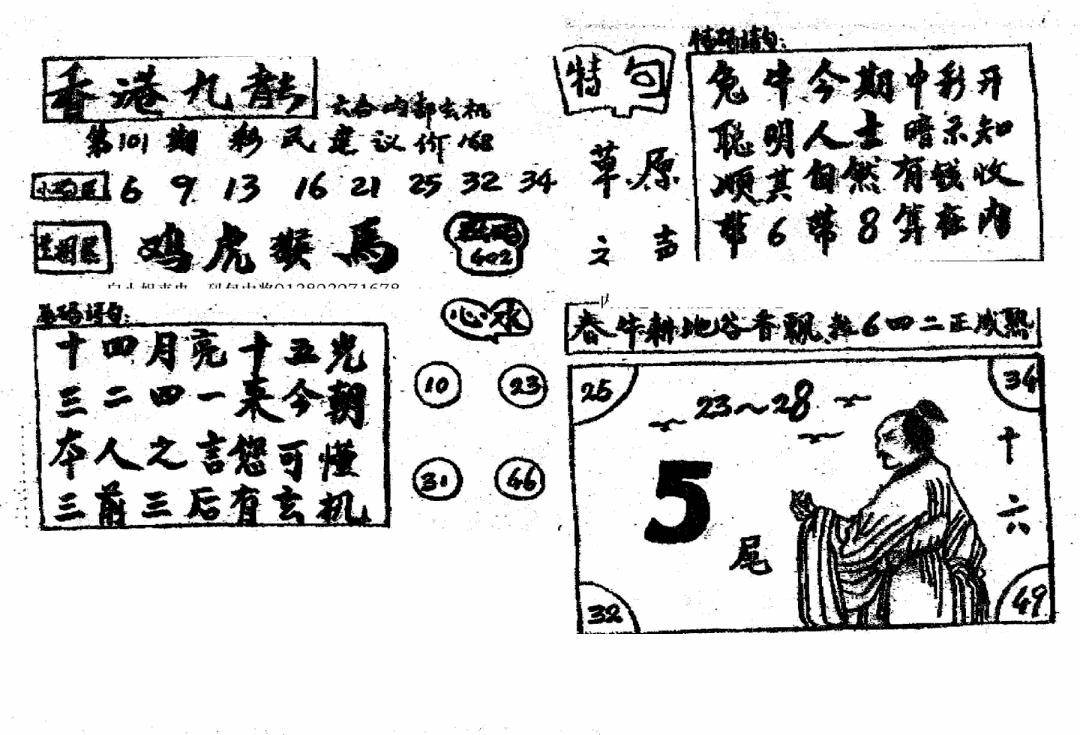 香港九龍
六合内部玄机
第101期 彩民建议价168
6 9 13 16 21 25 32 34
鸡虎猴馬
602
十四月亮十五光
三二四一来今朝
本人之言您可懂
三前三后有玄机
心水
10 23
31 46
特句
草原
之声
特码诗句:
兔牛今期中彩开
聪明人士暗示知
顺其自然有钱收
带6带8算在内
春牛耕地谷香飘 6四二正成熟
25 34
23~28
5
尾
十
六
32 49